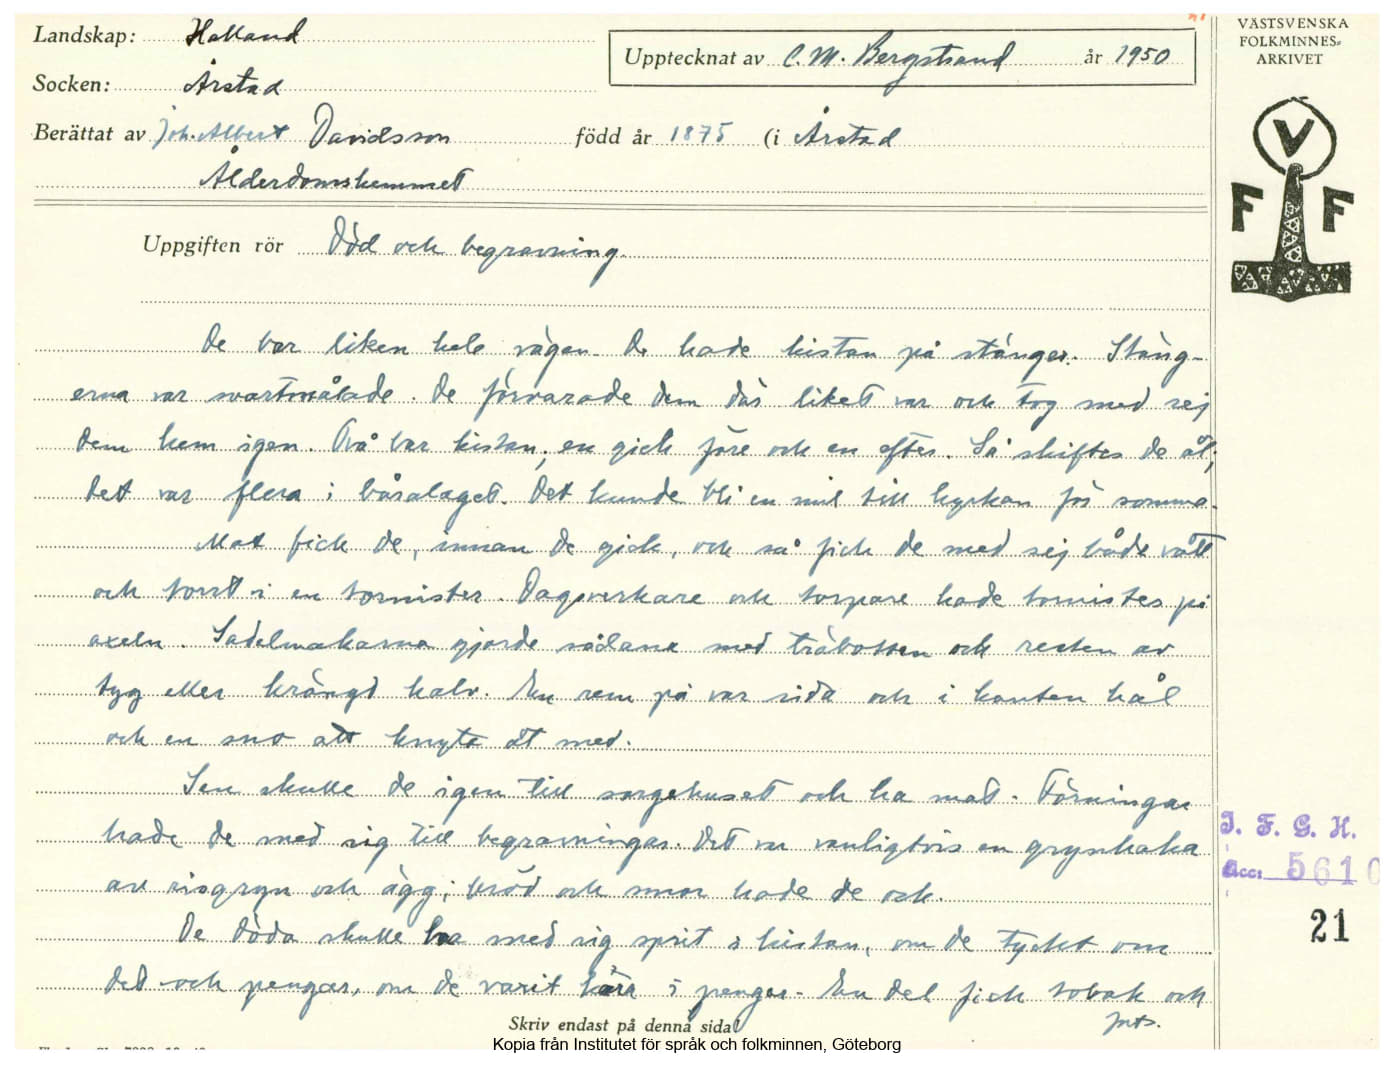 Landskap: Halland
Socken: Årstad
Upptecknat av C. M. Bergstrand år 1950
Berättat av Joh. Albert Davidsson född år 1875 (i Årstad
Ålderdomshemmet
VÄSTSVENSKA
FOLKMINNES=
ARKIVET
V
F F
Uppgiften rör Död och begravning.
De bar liken hela vägen. De hade kistan på stänger. Stäng-
erna var svartmålade. De förvarade dem där liket var och tog med sej
dem hem igen. Två bar kistan, en gick före och en efter. Så skiftes de åt,
det var flera i båralaget. Det kunde bli en mil till kyrkan för somma.
Mat fick de, innan de gick, och så fick de med sej både vått
och torrt i en tornister. Dagsverkare och torpare hade tornister på
axeln. Sadelmakarna gjorde sådana med träbotten och resten av
tyg eller krängd kalv. En rem på var sida och i kanten hål
och en sno att knyta åt med.
Sen skulle de igen till sorgehuset och ha mat. Förningar
hade de med sig till begravningar. Det var vanligtvis en grynkaka
av risgryn och ägg; bröd och smor hade de och.
De döda skulle ha med sig sprit i kistan, om de tyckt om
det och pengar, om de varit kära i pengar. En del fick tobak och
forts.
Skriv endast på denna sida!
I. F. G. H.
Acc: 5610
21
Kopia från Institutet för språk och folkminnen, Göteborg